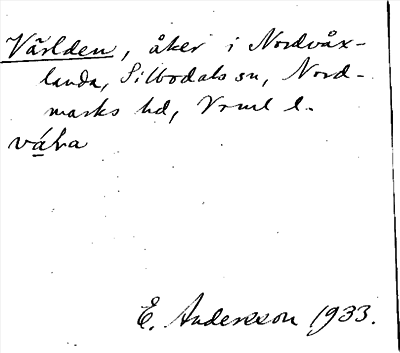 Världen, åker i Nordvåx-
landa, Silbodals sn, Nord-
marks hd, Vrml l.
E. Andersson 1933.